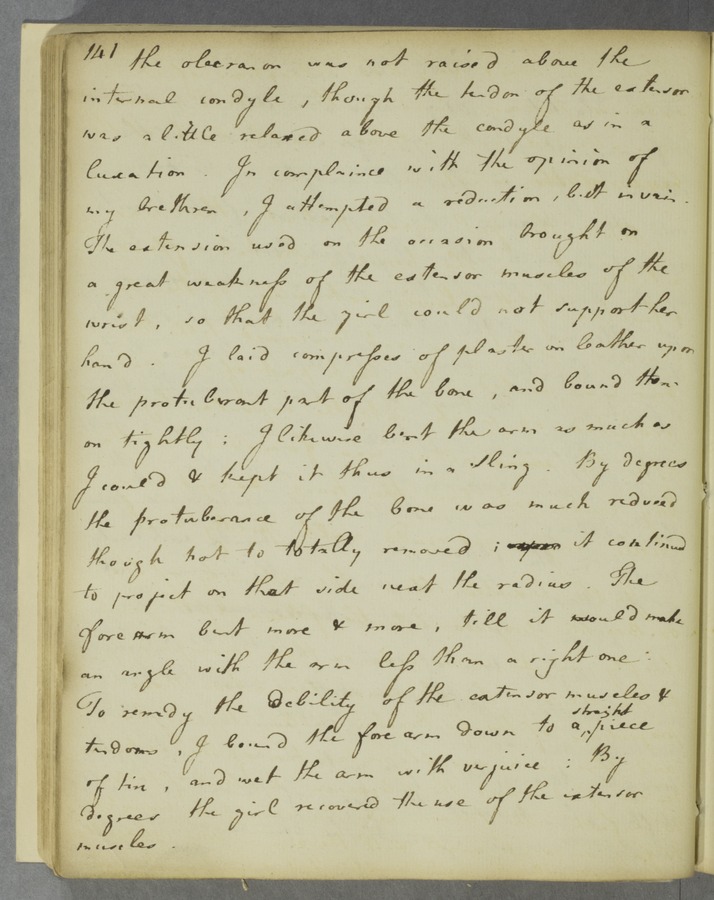 141 the olecranon was not raised above the
internal condyle, though the tendon of the extensor
was a little relaxed above the condyle as in a
luxation. In complaince with the opinion of
my brethren, I attempted a reduction, but in vain.
The extension used on the occasion brought on
a great weakness of the extensor muscles of the
wrist, so that the girl could not support her
hand. I laid compresses of plaster on leather upon
the protuberant part of the bone, and bound them
on tightly; I likewise bent the arm as much as
I could & kept it thus in a sling. By degrees
the protuberance of the bone was much reduced
though not to totally removed; it continued
to project on that side next the radius. The
fore arm bent more & more, till it would make
an angle with the arm less than a right one:
To remedy the debility of the extensor muscles &
tendons, I bound the fore arm down to a straight piece
of tin, and wet the arm with verjuice: By
degrees the girl recovered the use of the extensor
muscles.